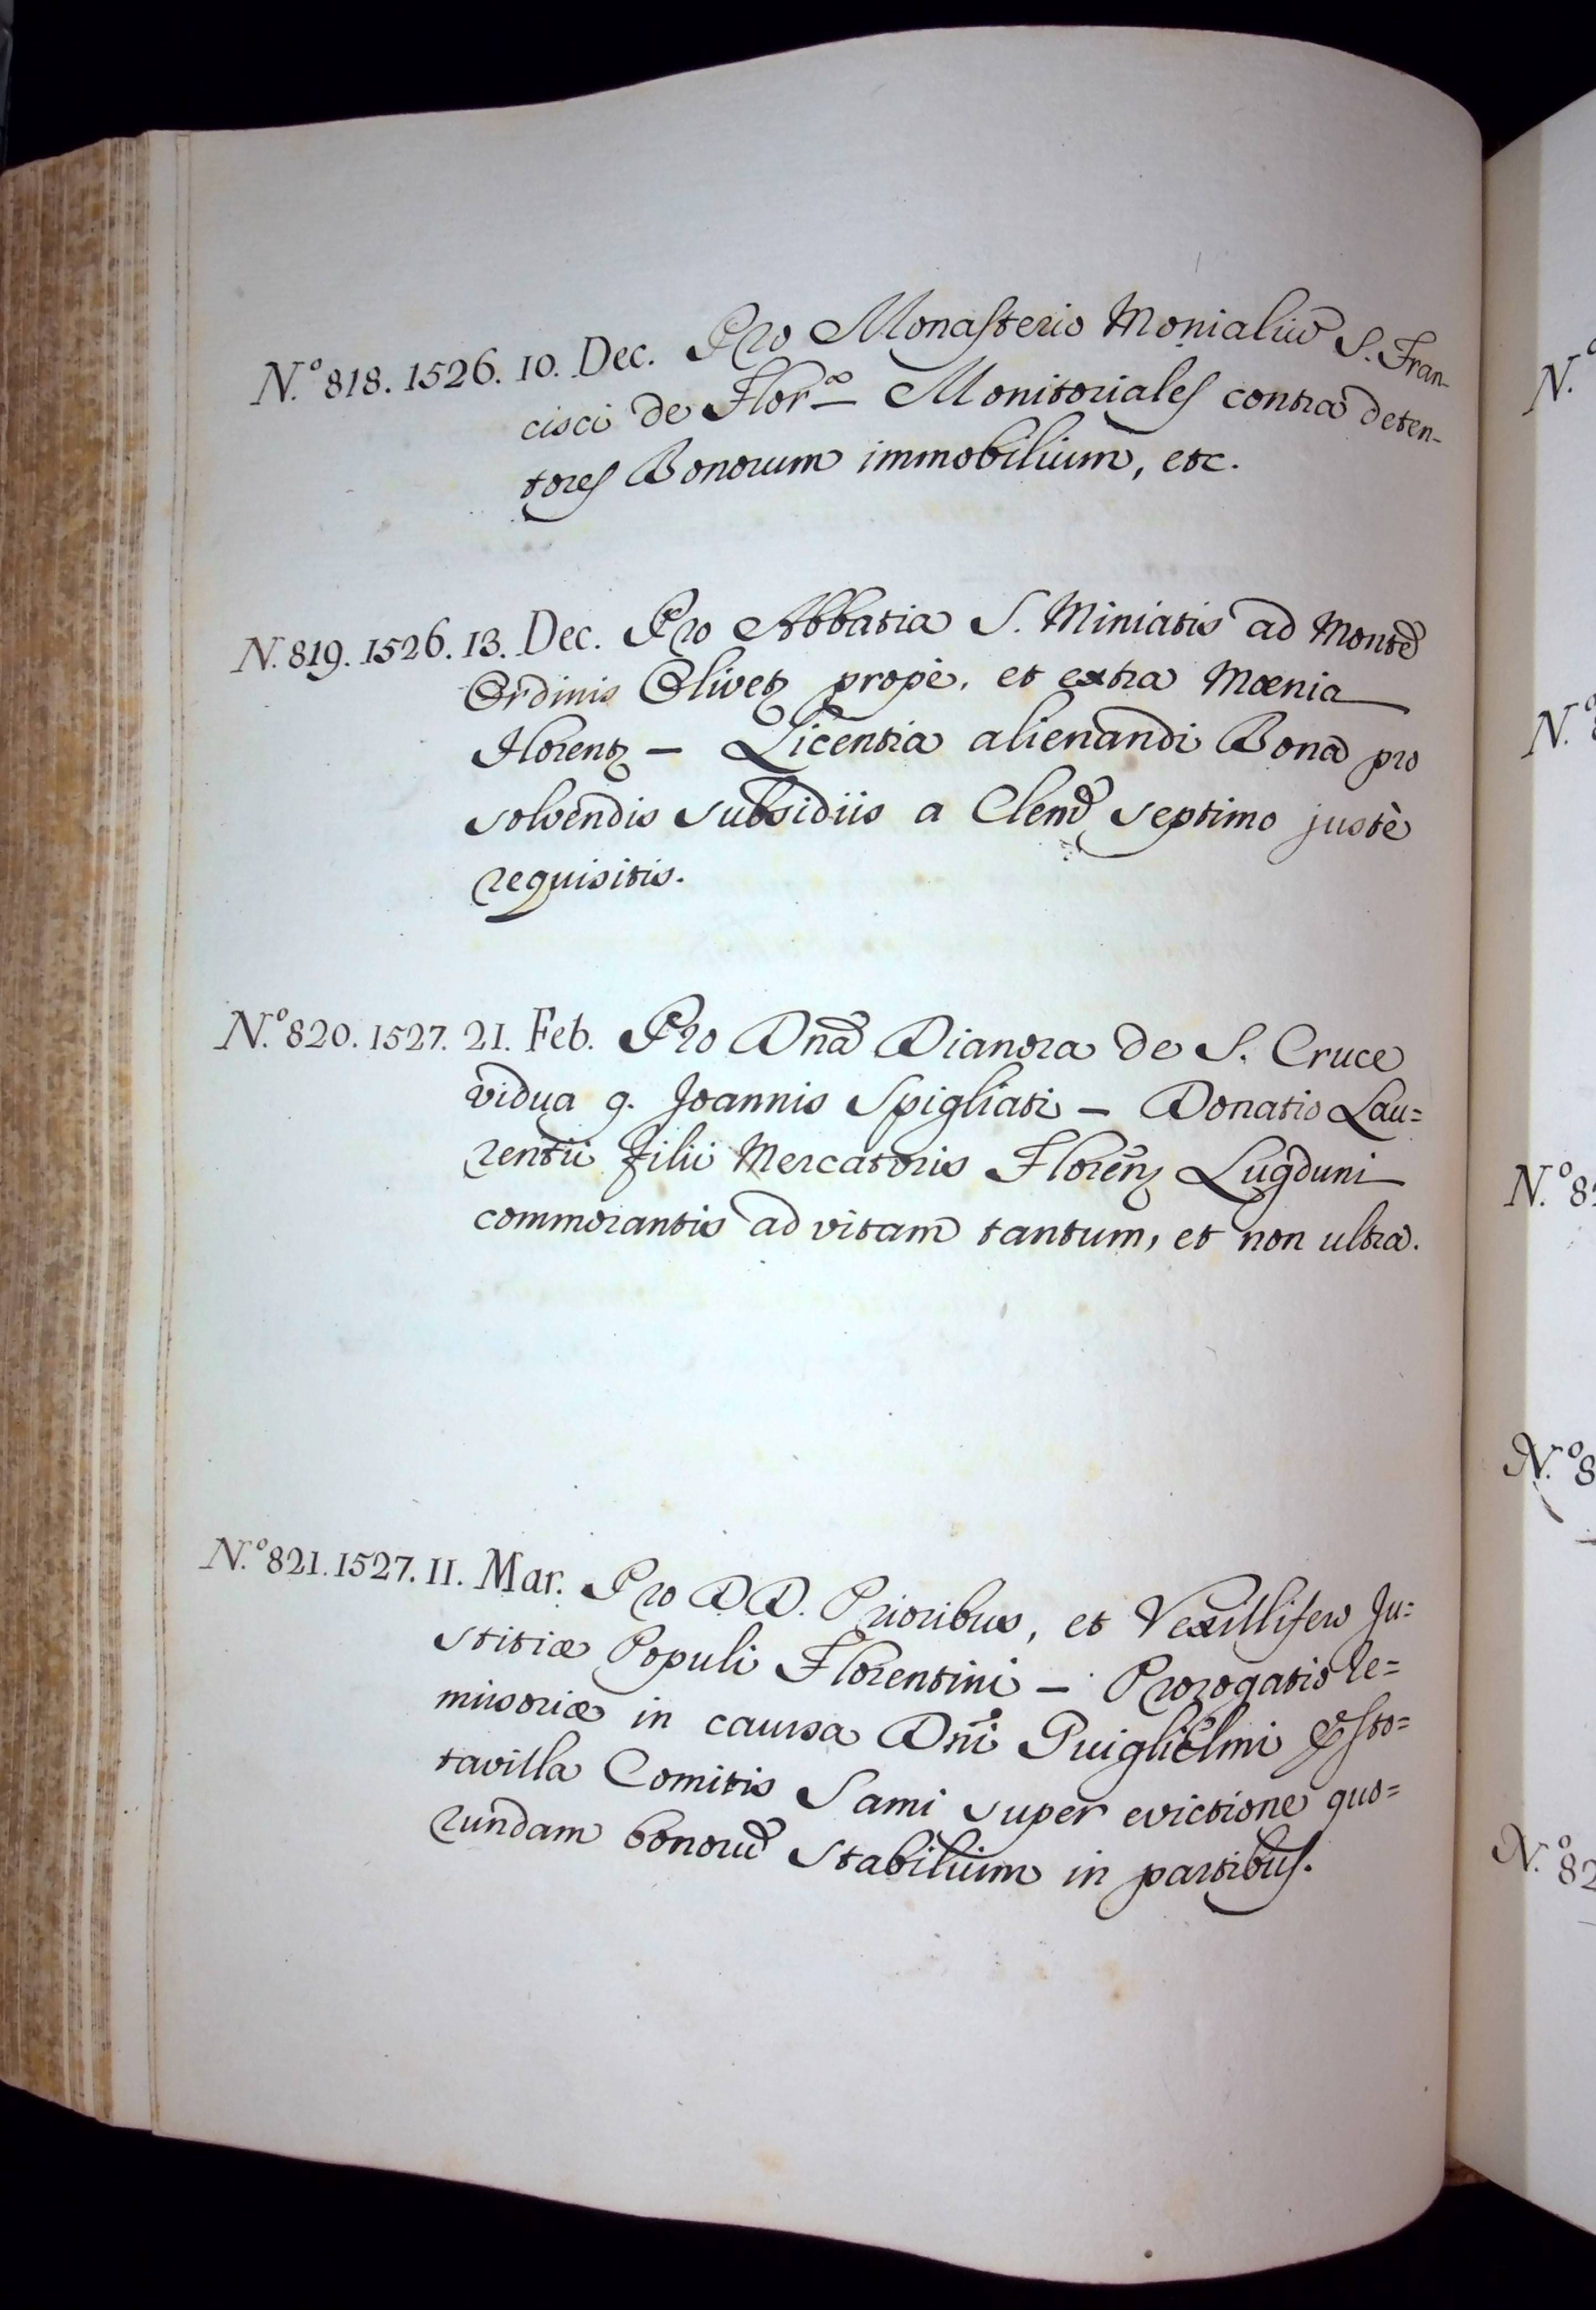 N.º 818. 1526. 10. Dec. Pro Monasterio Monialiu͞ S. Fran-
cisci de Flor.ª — Monitoriales contra deten-
tores Bonorum immobilium, etc.
N. 819. 1526. 13. Dec. Pro Abbatia S. Miniatis ad Monte͞
Ordinis Olivetȝ propè, et extra Mœnia
Florentȝ — Licentia alienandi Bona pro
solvendis subsidiis a Clem͞ septimo justè
requisitis.
N.º 820. 1527. 21. Feb. Pro Dna͞ Dianora de S. Cruce
vidua q. Joannis Spigliati — Donatio Lau=
rentii Filii Mercatoris Floren͞ȝ Lugduni
commorantis ad vitam tantum, et non ultra.
N.º 821. 1527. 11. Mar. Pro DD. Prioribus, et Vexillifero Ju=
stitiæ Populi Florentini — Prorogatio re=
missoriæ in caussa Dn͞i Guiglielmi
tavilla Comitis Sami super evictione quo=
rundam bonoru͞ stabilium in partibus.
N.º
N.º
N.º 8
N.º 8
N.º 82